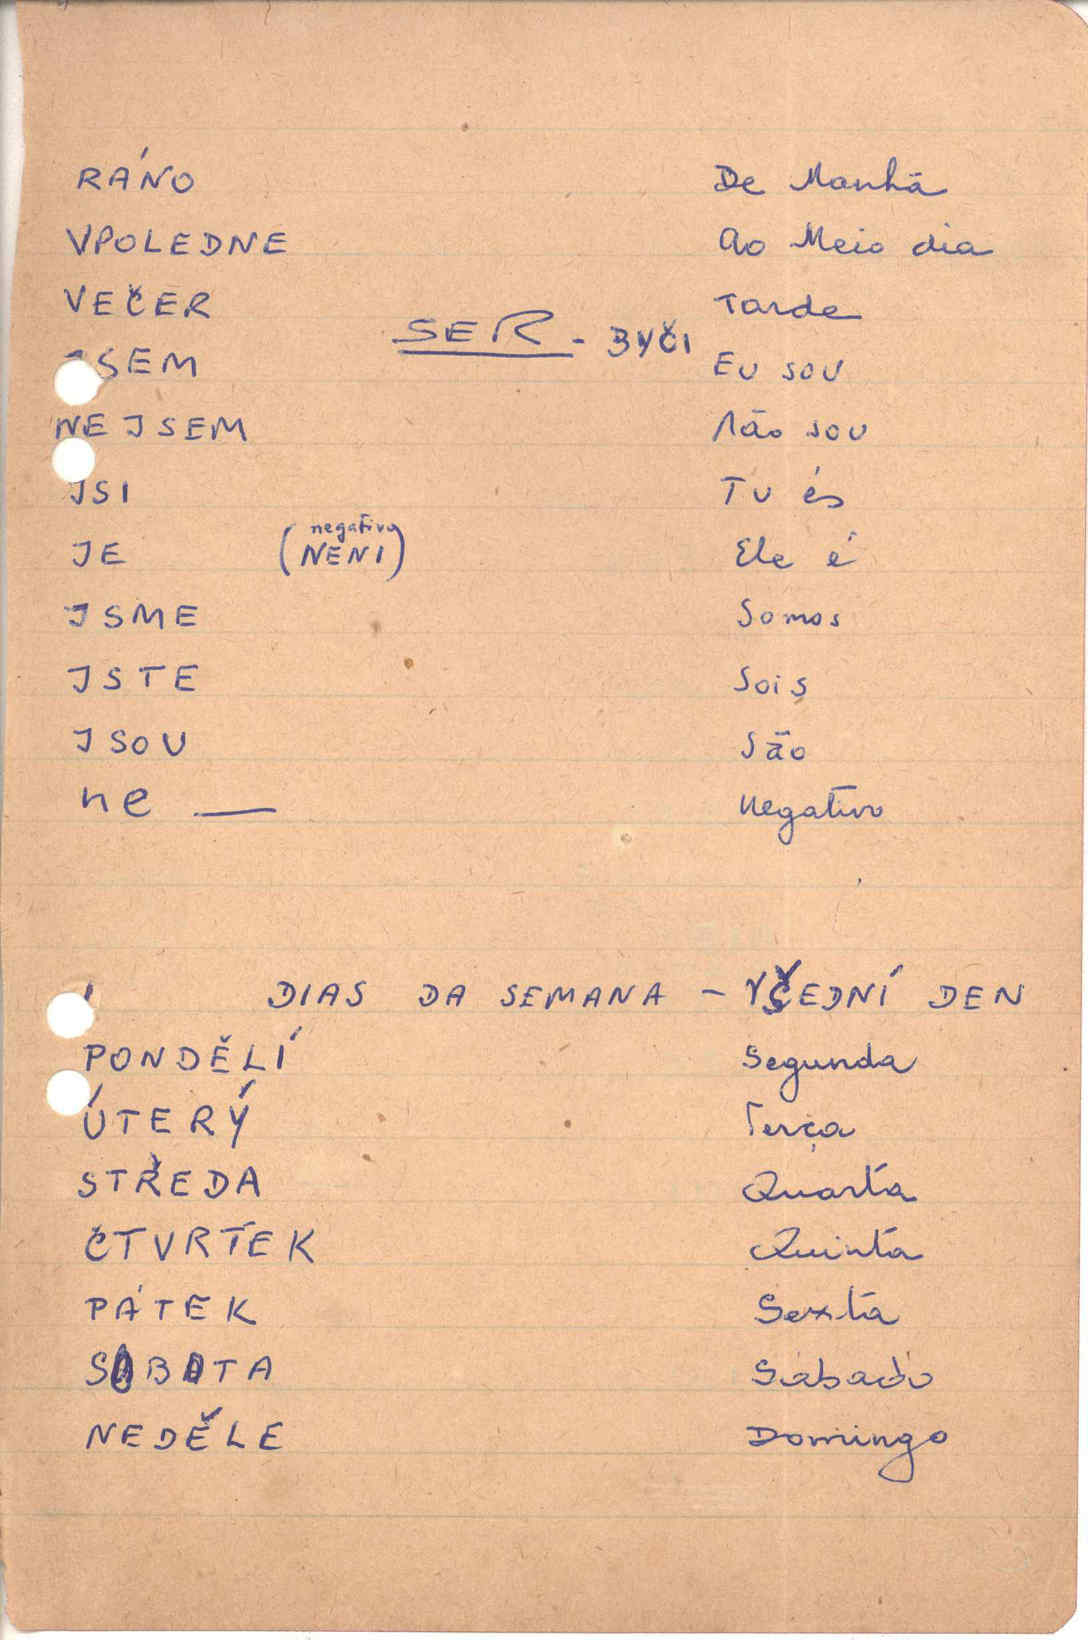 RÁNO De Manhã
VPOLEDNE Ao Meio dia
VEČER Tarde
SER - BYČI
JSEM Eu sou
NEJSEM Não sou
JSI Tu és
JE (negativo NENI) Ele é
JSME Somos
JSTE Sois
JSOU São
ne __ Negativo
DIAS DA SEMANA - VŠEDNÍ DEN
PONDĚLÍ Segunda
ÚTERÝ Terça
STŘEDA Quarta
ČTVRTEK Quinta
PÁTEK Sexta
SOBOTA Sábado
NEDĚLE Domingo